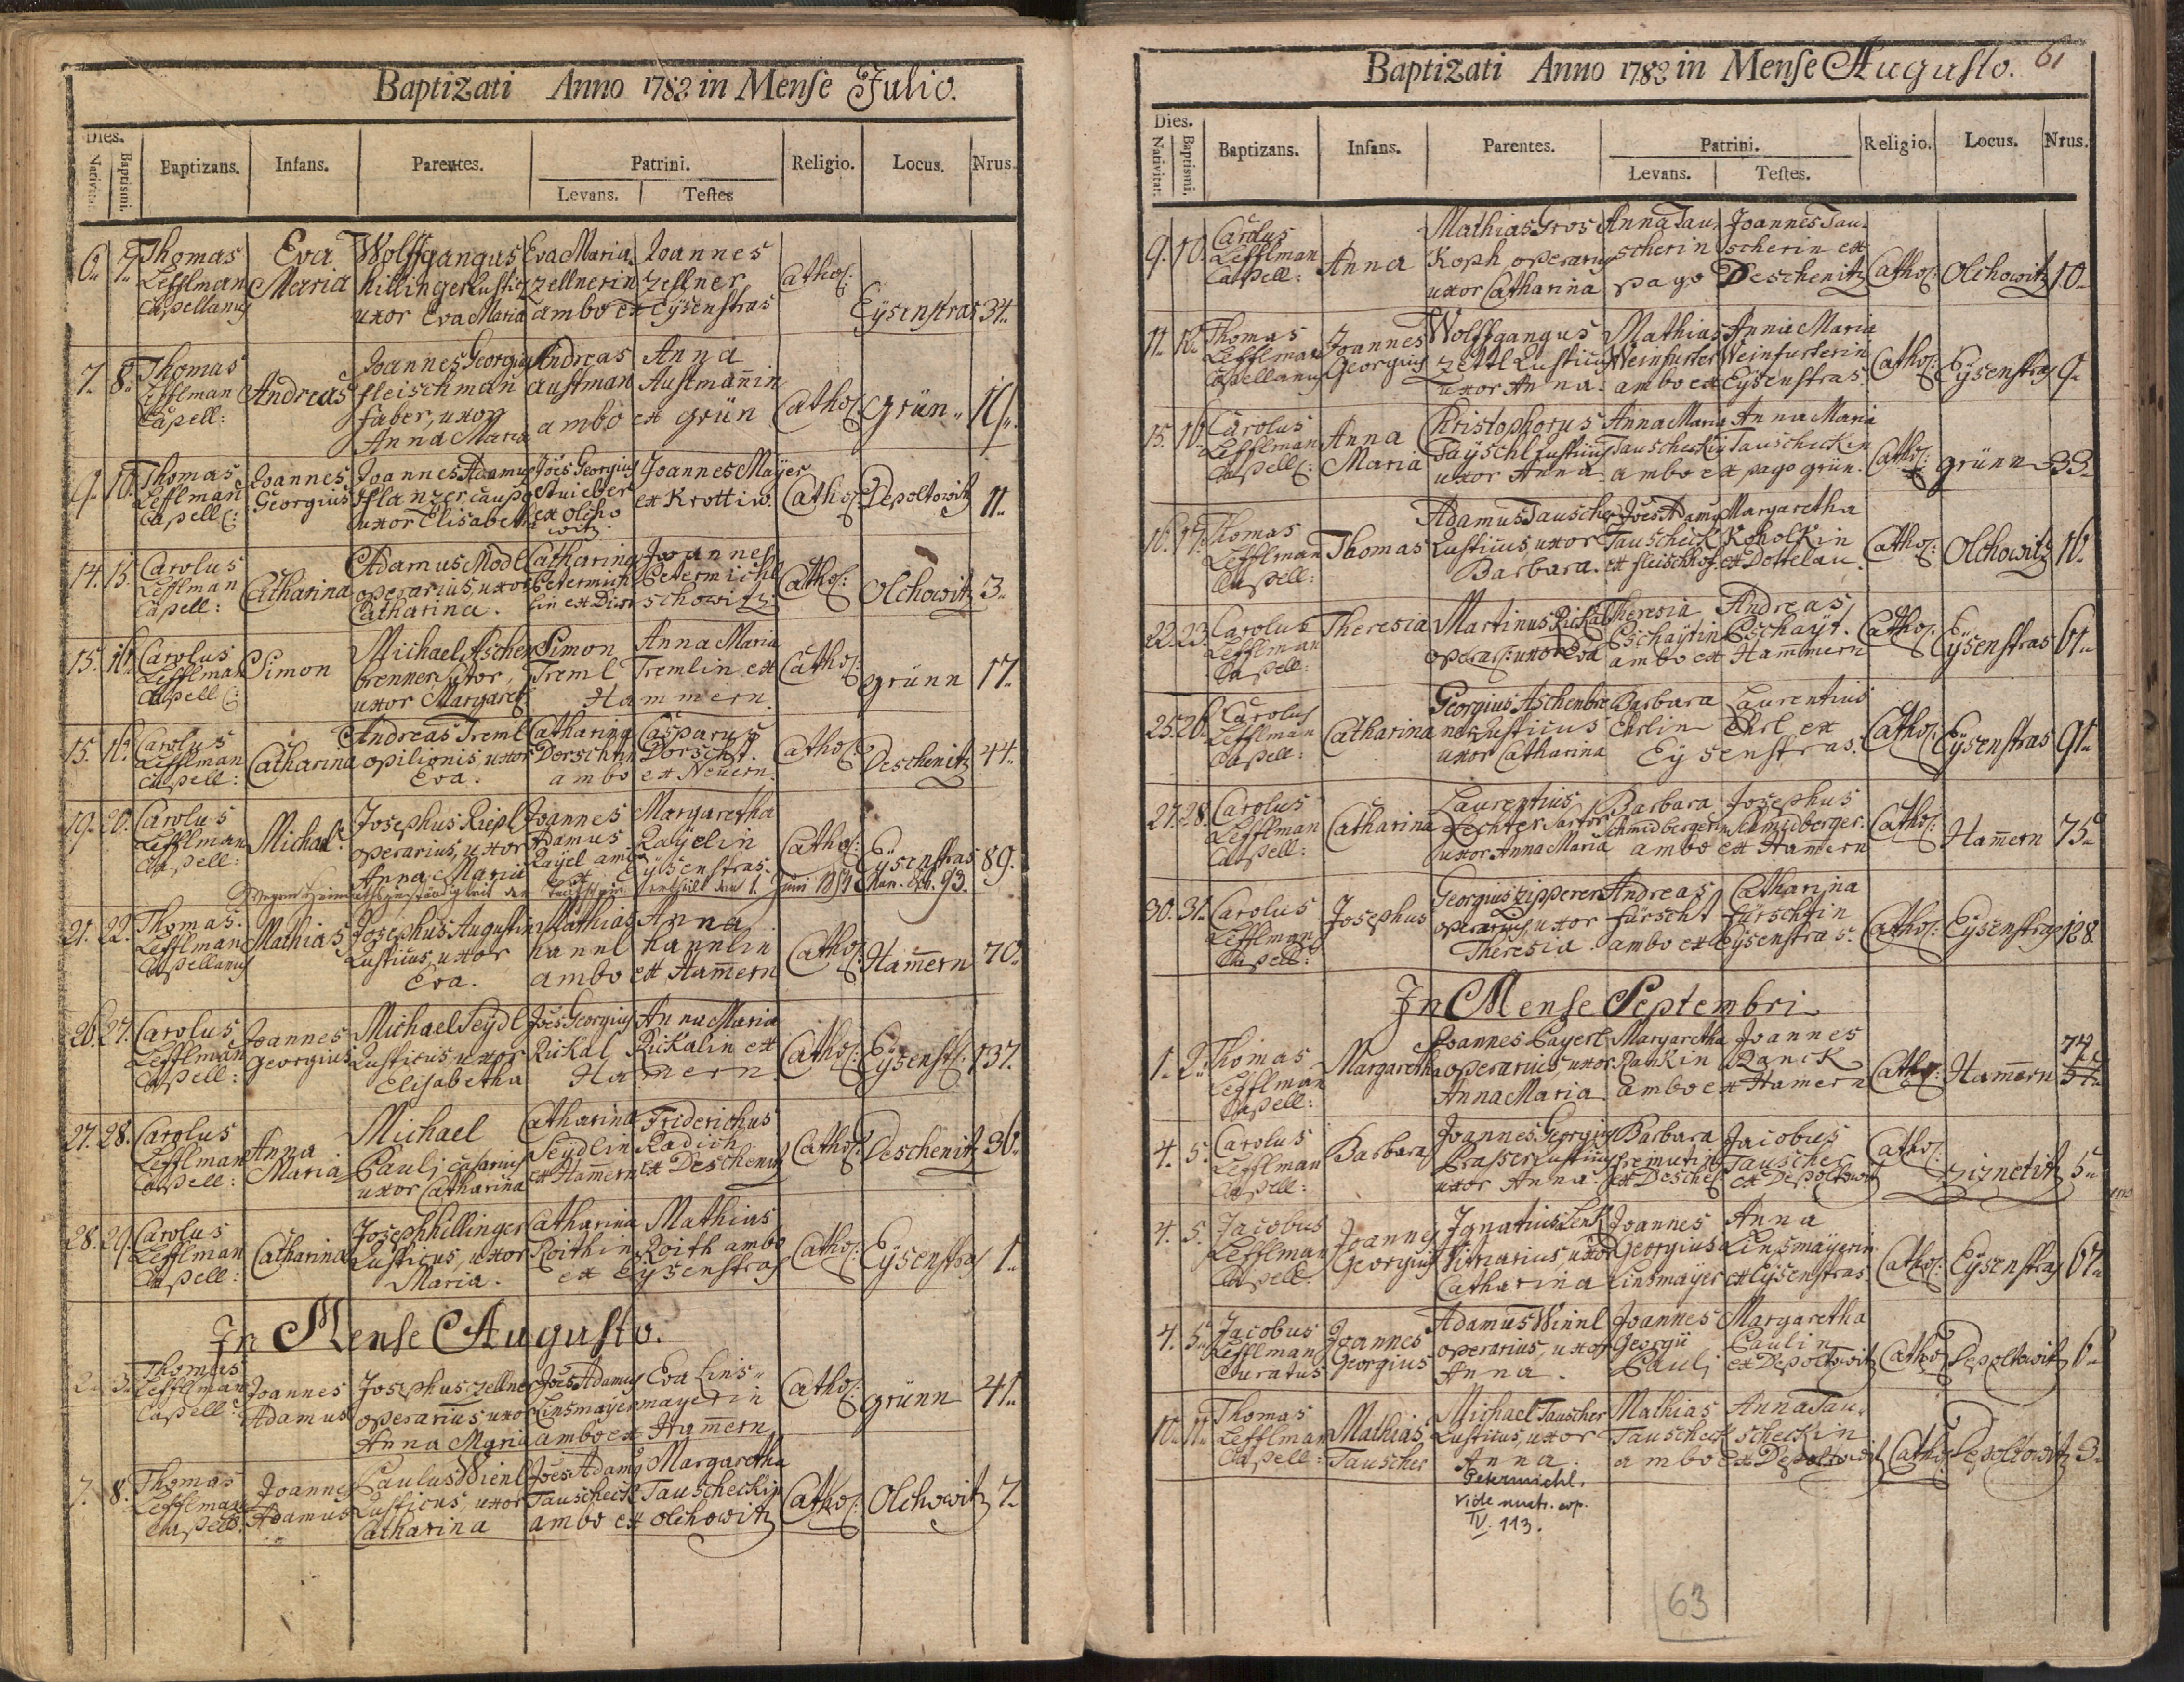 Baptizati Anno 1783 in Mense Julio.
Dies.
Nativitat. Baptismi. Baptizans. Infans. Parentes. Patrini. Religio. Locus. Nrus.
Levans. Testes
6. 7. Thomas Lefflman Capellanus Eva Maria Wolffgangus hillinger Rusticus uxor Eva Maria Eva Maria zellnerin Joannes zellner ambo ex Eÿsenstras Cathol: Eÿsenstras 34.
7. 8. Thomas Lefflman Capell: Andreas Joannes Georgius fleischman faber, uxor Anna Maria Andreas Austman Anna Austmañin ambo ex grün Cathol: grün
9. 10. Thomas Lefflman Capell: Joannes Georgius Joannes Adamus Pflanzer caupo uxor Elisabeth Jões Georgius Stuieber ex Olchowitz Joannes Maÿer ex Krottiw. Cathol: Depoltowitz 11.
14. 15. Carolus Lefflman Capell: Catharina Adamus Modl operarius, uxor Catharina. Catharina Petermichlin Joannes Petermichl ex Divoschowitz Cathol: Olchowitz 3.
15. 16. Carolus Lefflman Capell: Simon Michael Aschenbrenner uxor Margaret Simon Treml Anna Maria Tremlin ex Hammern. Cathol: grünn 17.
15. 16. Carolus Lefflman Capell: Catharina Andreas Treml opilionis, uxor Eva. Catharina Dorschtin Casparus Dorscht. ambo ex Neuern. Cathol: Deschenitz 44.
19. 20. Carolus Lefflman Capell: Michael. Josephus Riepl operarius, uxor Anna Maria Joannes Adamus Raÿel Margaretha Raÿelin ambo ex Eÿsenstras. Cathol: Eÿsenstras 89.
Wegen Heimathszuständigkeit den Taufschein ertheilt den 1. Juni
21. 22. Thomas Lefflman Capellanus Mathias Josephus Augustin Rusticus, uxor Eva. Mathias hannl Anna hannlin ambo ex Ham̄ern Cathol: Ham̄ern 70.
26. 27. Carolus Lefflman Capell: Joannes Georgius Michael Seÿdl Rusticus uxor Elisabetha Jões Georgius Rickal Anna Maria Rickalin ex Ham̄ern. Cathol: Eÿsenst: 137.
27. 28. Carolus Lefflman Capell: Anna Maria Michael Pauli casarius uxor Catharina Catharina Seÿdlin ex Ham̄ern Friderichus Radich ex Deschenitz Cathol: Deschenitz 36.
28. 29. Carolus Lefflman Capell: Catharina Joseph hillinger Rusticus, uxor Maria. Catharina Roithin Mathias Roith ambo ex Eÿsenstras Cathol: Eÿsenstras 1.
In Mense Augusto.
2. 3. Thomas Lefflman Capell: Joannes Adamus Josephus zellner operarius uxor Anna Maria Jões Adamus Linsmayer Eva Linsmayerin ambo ex Ham̄ern Cathol: grünn 41.
7. 8. Thomas Lefflman Capell: Joannes Adamus Paulus Wienl Rusticus, uxor Catharina Jões Adamus Tauscheck Margaretha Tauscheckin ambo ex Olchowitz Cathol: Olchowitz 7.
Baptizati Anno 1783 in Mense Augusto. 61
Dies.
Nativitat. Baptismi. Baptizans. Infans. Parentes. Patrini. Religio. Locus. Nrus.
Levans. Testes.
9. 10. Carolus Lefflman Capell: Anna Mathias Groskoph operarius uxor Catharina Anna Tauscherin Joannes Tauscherin ex pago Deschenitz Cathol: Olchowitz 10.
11. 12. Thomas Lefflman Capellanus Joannes Georgius Wolffgangus zettl Rusticus uxor Anna. Mathias Weinfurter Anna Maria Weinfurterin ambo ex Eÿsenstras. Cathol: Eÿsenstras 9.
15. 16. Carolus Lefflman Capell: Anna Maria Christophorus Päÿschl Rusticus uxor Anna Anna Maria Tauscheckin Anna Maria Tauscheckin ambo ex pago grün. Cathol: grünn 33.
16. 17. Thomas Lefflman Capell: Thomas Adamus Tauscher Rusticus, uxor Barbara. Jões Adamus Tauscheck ex fleischhof. Margaretha Koholkin ex Dottelau. Cathol: Olchowitz 16.
22. 23. Carolus Lefflman Capell: Theresia Martinus Rickal operarius uxor Eva Theresia Pschaÿtin Andreas Pschaÿt. ambo ex Ham̄mern Cathol: Eÿsenstras 61.
25. 26. Carolus Lefflman Capell: Catharina Georgius Aschenbrenner Rusticus uxor Catharina Barbara Ehrlin Laurentius Ehrl ex Eÿsenstras. Cathol: Eÿsenstras 91.
27. 28. Carolus Lefflman Capell: Catharina Laurentius Lechter Sartor uxor Anna Maria Barbara Schmidbergerin Josephus Schmidberger. ambo ex Ham̄ern Cathol: Ham̄ern 75.
30. 31. Carolus Lefflman Capell: Josephus Georgius zipperer operarius uxor Theresia. Andreas fürscht Catharina fürschtin ambo ex Eÿsenstras. Cathol: Eÿsenstras 128.
In Mense Septembri
1. 2. Thomas Lefflman Capell: Margaretha Joannes Payerl operarius uxor Anna Maria Margaretha Panckin Joannes Panck ambo ex Hamern Cathol: Ham̄ern 74
4. 5. Carolus Lefflman Capell: Barbara Joannes Georgius Praser Rusticus uxor Anna. Barbara freimutin ex Desche: Jacobus Tauscher ex Depoltowitz Cathol: Siznetitz 5.
4. 5. Jacobus Lefflman Capell. Joannes Georgius Ignatius Lenk Vitriarius uxor Catharina Joannes Georgius Linsmaÿer Anna Linsmaÿerin ex Eÿsenstras. Cathol: Eÿsenstras 67.
4. 5. Jacobus Lefflman Curatus Joannes Georgius Adamus Winnl operarius, uxor Anna. Joannes Georgii Pauli Margaretha Paulin ex Depoltowitz Cathol: Depoltowitz 6.
10. 11. Thomas Lefflman Capell: Mathias Tauscher Michael Tauscher Rusticus, uxor Anna. Mathias Tauscheck Anna Tauscheckin ambo ex Depoltowitz Cathol: Depoltowitz 3.
Petermichl.
Vide matr. cop.
IV. 113.
63